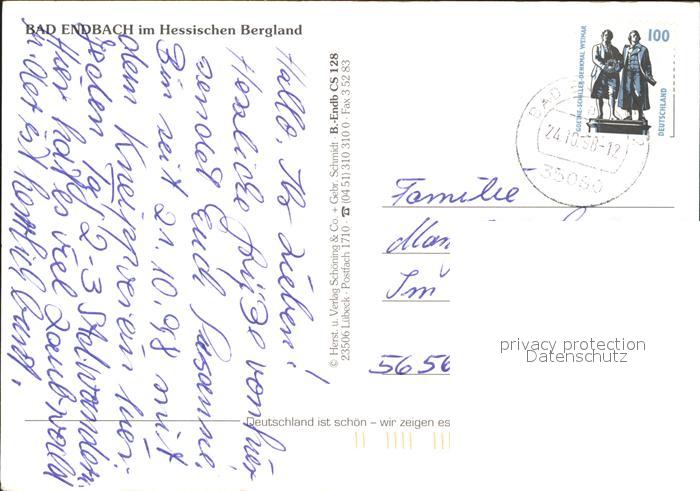 BAD ENDBACH im Hessischen Bergland
Hallo, Ihr Lieben!
Herzliche Grüße von hier
sendet Euch Susanne.
Bin seit 21.10.98 mit
dem Kneippverein hier.
Jeden Tag 2-3 Std. wandern.
Hier hat es viel Laubwald
u. der ist
bunt.
© Herst. u. Verlag Schöning & Co. + Gebr. Schmidt · B.-Endb CS 128
23506 Lübeck · Postfach 1710 · ☎ (04 51) 310 310 0 · Fax 3 52 83
Deutschland ist schön – wir zeigen es
GOETHE-SCHILLER-DENKMAL WEIMAR
100
DEUTSCHLAND
BAD
24.10.98-12
35080
Familie
Im
5656
privacy protection
Datenschutz